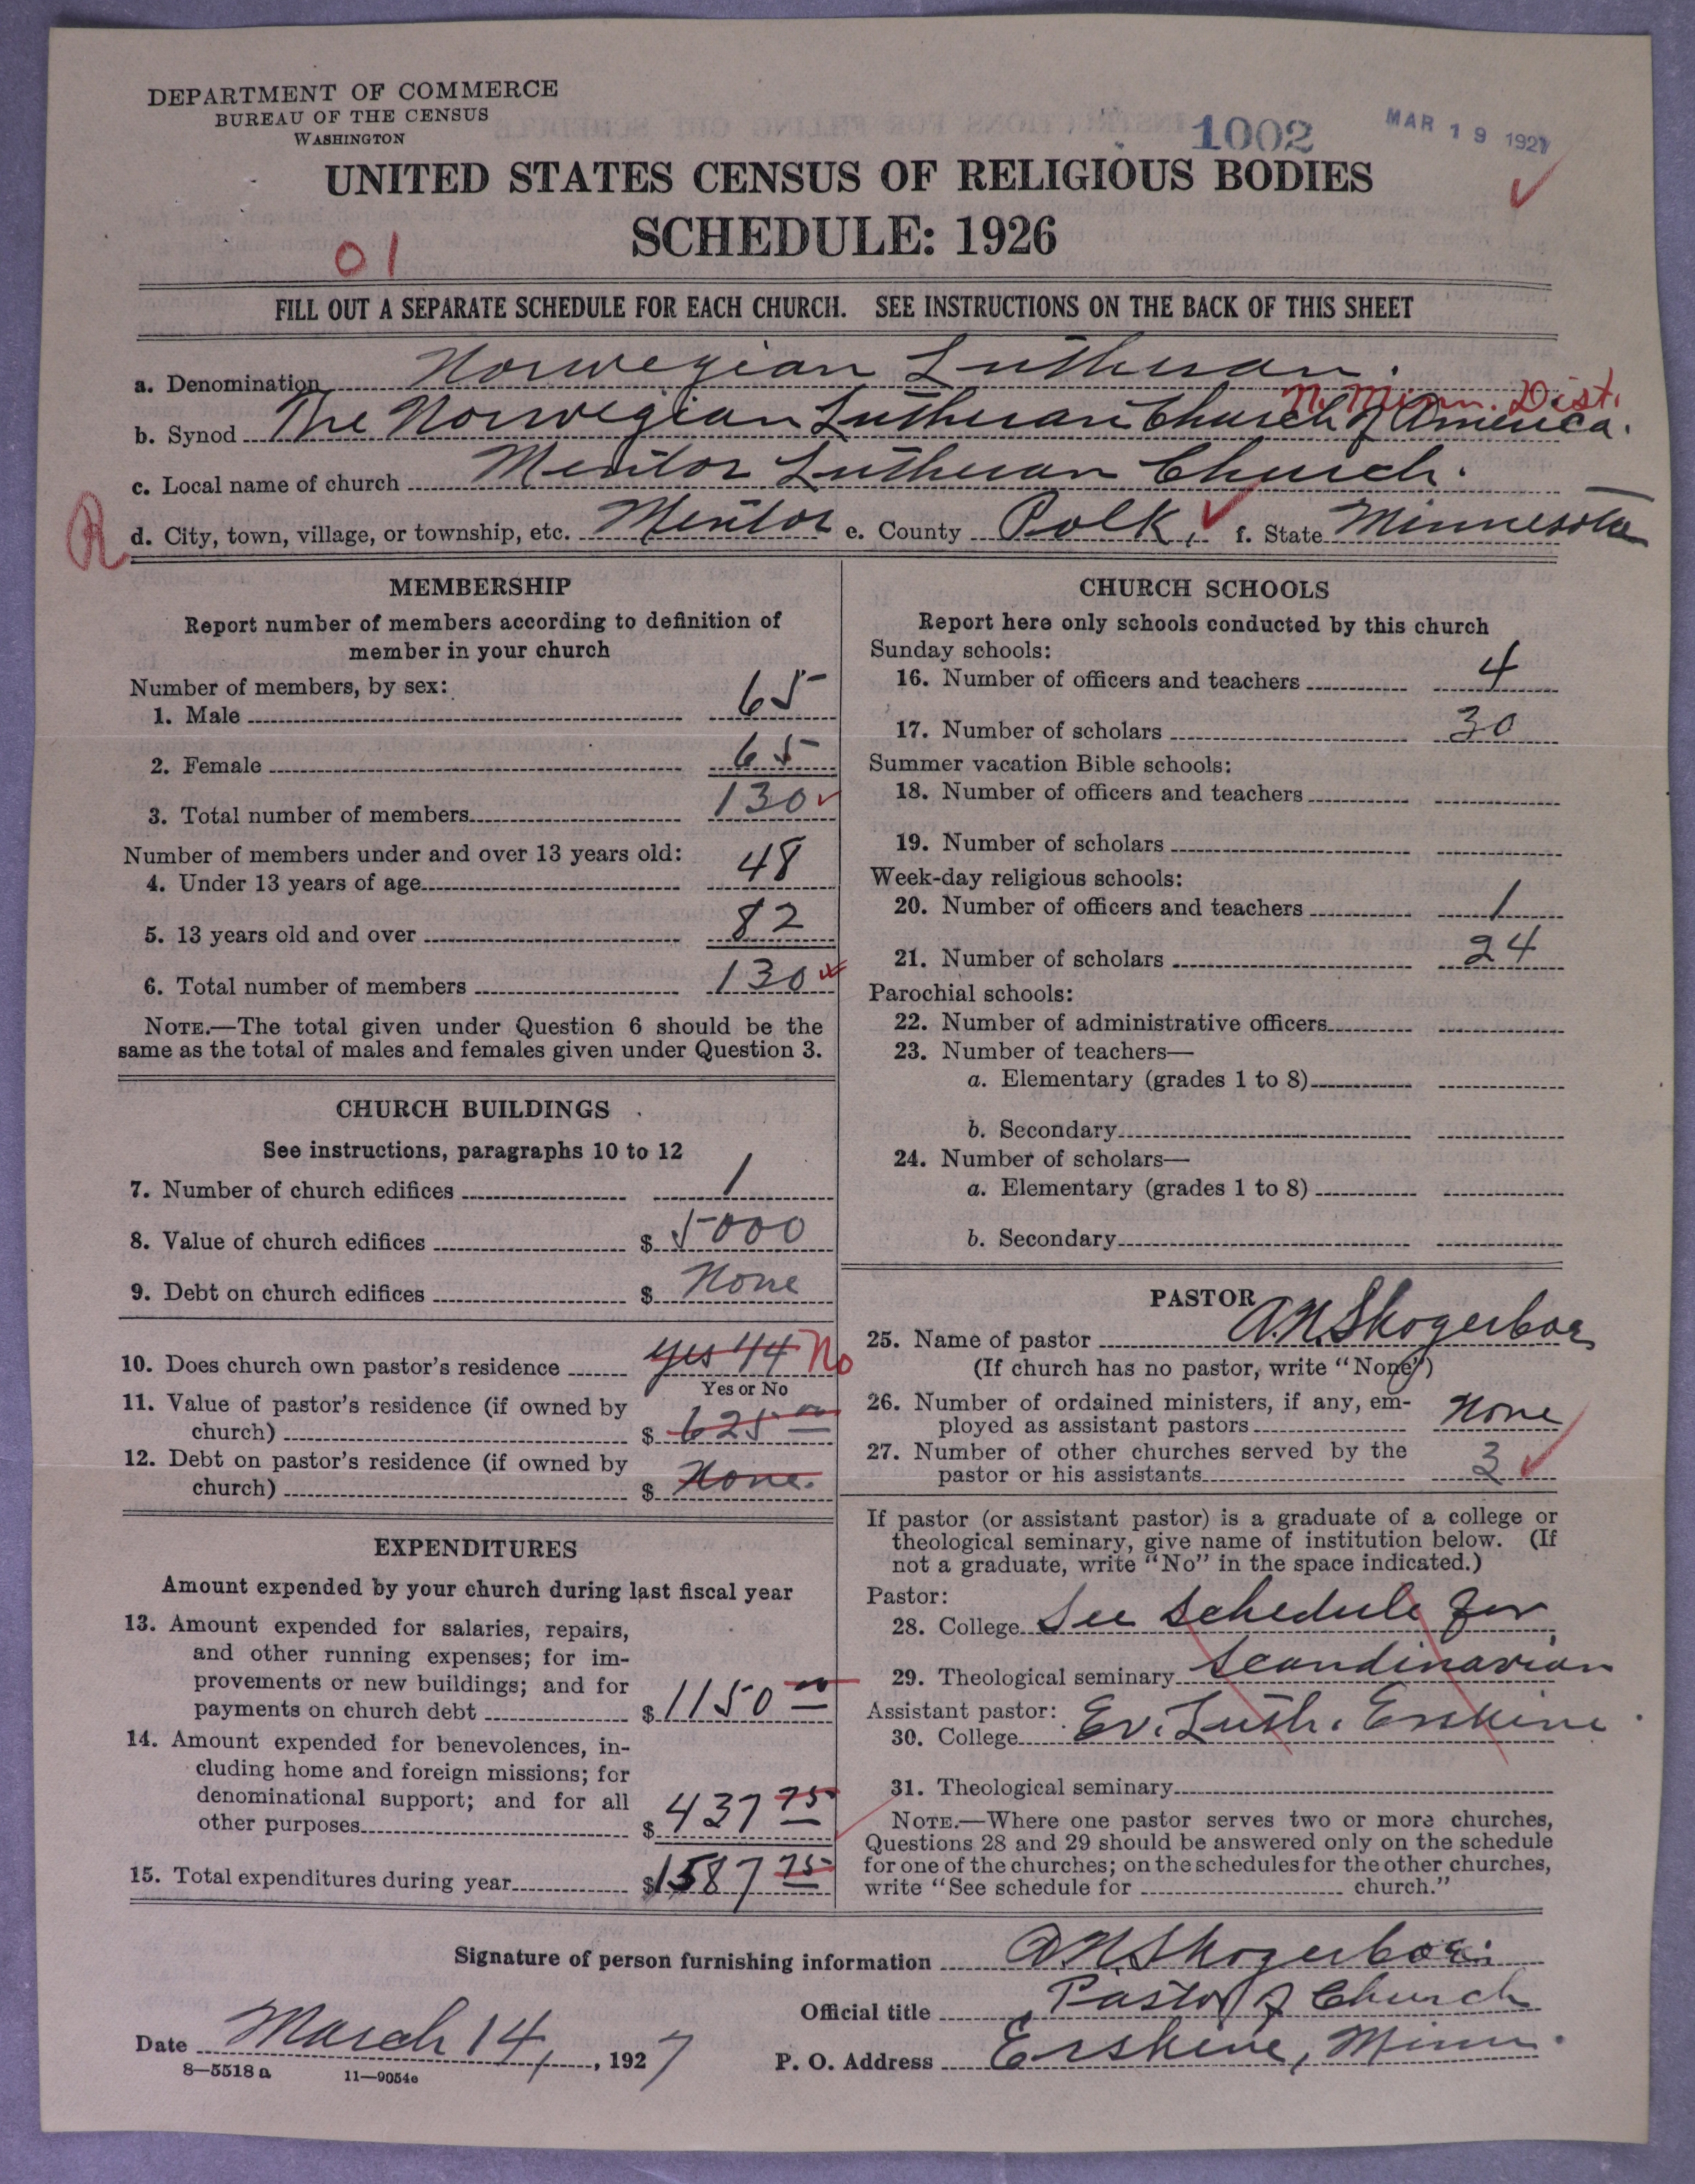 DEPARTMENT OF COMMERCE
BUREAU OF THE CENSUS
WASHINGTON
1002
MAR 19 1927
UNITED STATES CENSUS OF RELIGIOUS BODIES
SCHEDULE: 1926
01
FILL OUT A SEPARATE SCHEDULE FOR EACH CHURCH. SEE INSTRUCTIONS ON THE BACK OF THIS SHEET
a. Denomination Norwegian Lutheran.
N. Minn. Dist.
b. Synod The Norwegian Lutheran Church of America.
c. Local name of church Mentor Lutheran Church.
R d. City, town, village, or township, etc. Mentor e. County Polk, f. State Minnesota
MEMBERSHIP
Report number of members according to definition of
member in your church
Number of members, by sex:
1. Male 65
2. Female 65
3. Total number of members 130
Number of members under and over 13 years old:
4. Under 13 years of age 48
5. 13 years old and over 82
6. Total number of members 130
NOTE.—The total given under Question 6 should be the
same as the total of males and females given under Question 3.
CHURCH BUILDINGS
See instructions, paragraphs 10 to 12
7. Number of church edifices 1
8. Value of church edifices $ 5000
9. Debt on church edifices $ None
10. Does church own pastor's residence yes 44 No
Yes or No
11. Value of pastor's residence (if owned by
church) $ 625 00
12. Debt on pastor's residence (if owned by
church) $ None.
EXPENDITURES
Amount expended by your church during last fiscal year
13. Amount expended for salaries, repairs,
and other running expenses; for im-
provements or new buildings; and for
payments on church debt $ 1150 00
14. Amount expended for benevolences, in-
cluding home and foreign missions; for
denominational support; and for all
other purposes $ 437 75
15. Total expenditures during year $ 1587 75
CHURCH SCHOOLS
Report here only schools conducted by this church
Sunday schools:
16. Number of officers and teachers 4
17. Number of scholars 30
Summer vacation Bible schools:
18. Number of officers and teachers
19. Number of scholars
Week-day religious schools:
20. Number of officers and teachers 1
21. Number of scholars 24
Parochial schools:
22. Number of administrative officers
23. Number of teachers—
a. Elementary (grades 1 to 8)
b. Secondary
24. Number of scholars—
a. Elementary (grades 1 to 8)
b. Secondary
PASTOR
25. Name of pastor A.N. Skogerboe
(If church has no pastor, write "None")
26. Number of ordained ministers, if any, em-
ployed as assistant pastors None
27. Number of other churches served by the
pastor or his assistants 3
If pastor (or assistant pastor) is a graduate of a college or
theological seminary, give name of institution below. (If
not a graduate, write "No" in the space indicated.)
Pastor:
28. College See schedule for
29. Theological seminary Scandinavian
Assistant pastor:
30. College Ev. Luth. Erskine.
31. Theological seminary
NOTE.—Where one pastor serves two or more churches,
Questions 28 and 29 should be answered only on the schedule
for one of the churches; on the schedules for the other churches,
write "See schedule for church."
Signature of person furnishing information A.N. Skogerboe.
Official title Pastor of Church
Date March 14, 1927
P. O. Address Erskine, Minn.
8—5518 a 11—9054e